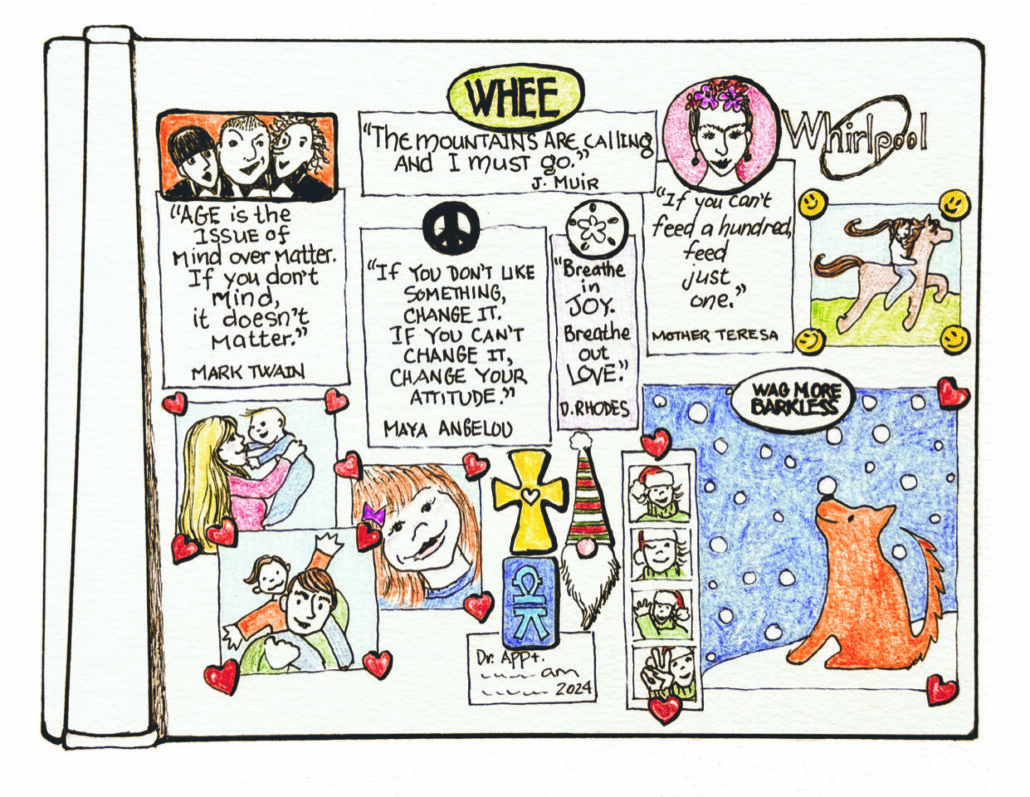 WHEE
“The mountains are calling
and I must go.”
J. Muir
Whirlpool
“AGE is the
ISSUE of
Mind over Matter.
If you don't
Mind,
it doesn't
Matter.”
MARK TWAIN
“IF YOU DON'T LIKE
SOMETHING,
CHANGE IT.
IF YOU CAN'T
CHANGE IT,
CHANGE YOUR
ATTITUDE.”
MAYA ANGELOU
“Breathe
in
JOY.
Breathe
out
LOVE.”
D. RHODES
“If you can't
feed a hundred,
feed
just
one.”
MOTHER TERESA
WAG MORE
BARK LESS
Dr. APPt.
am
2024